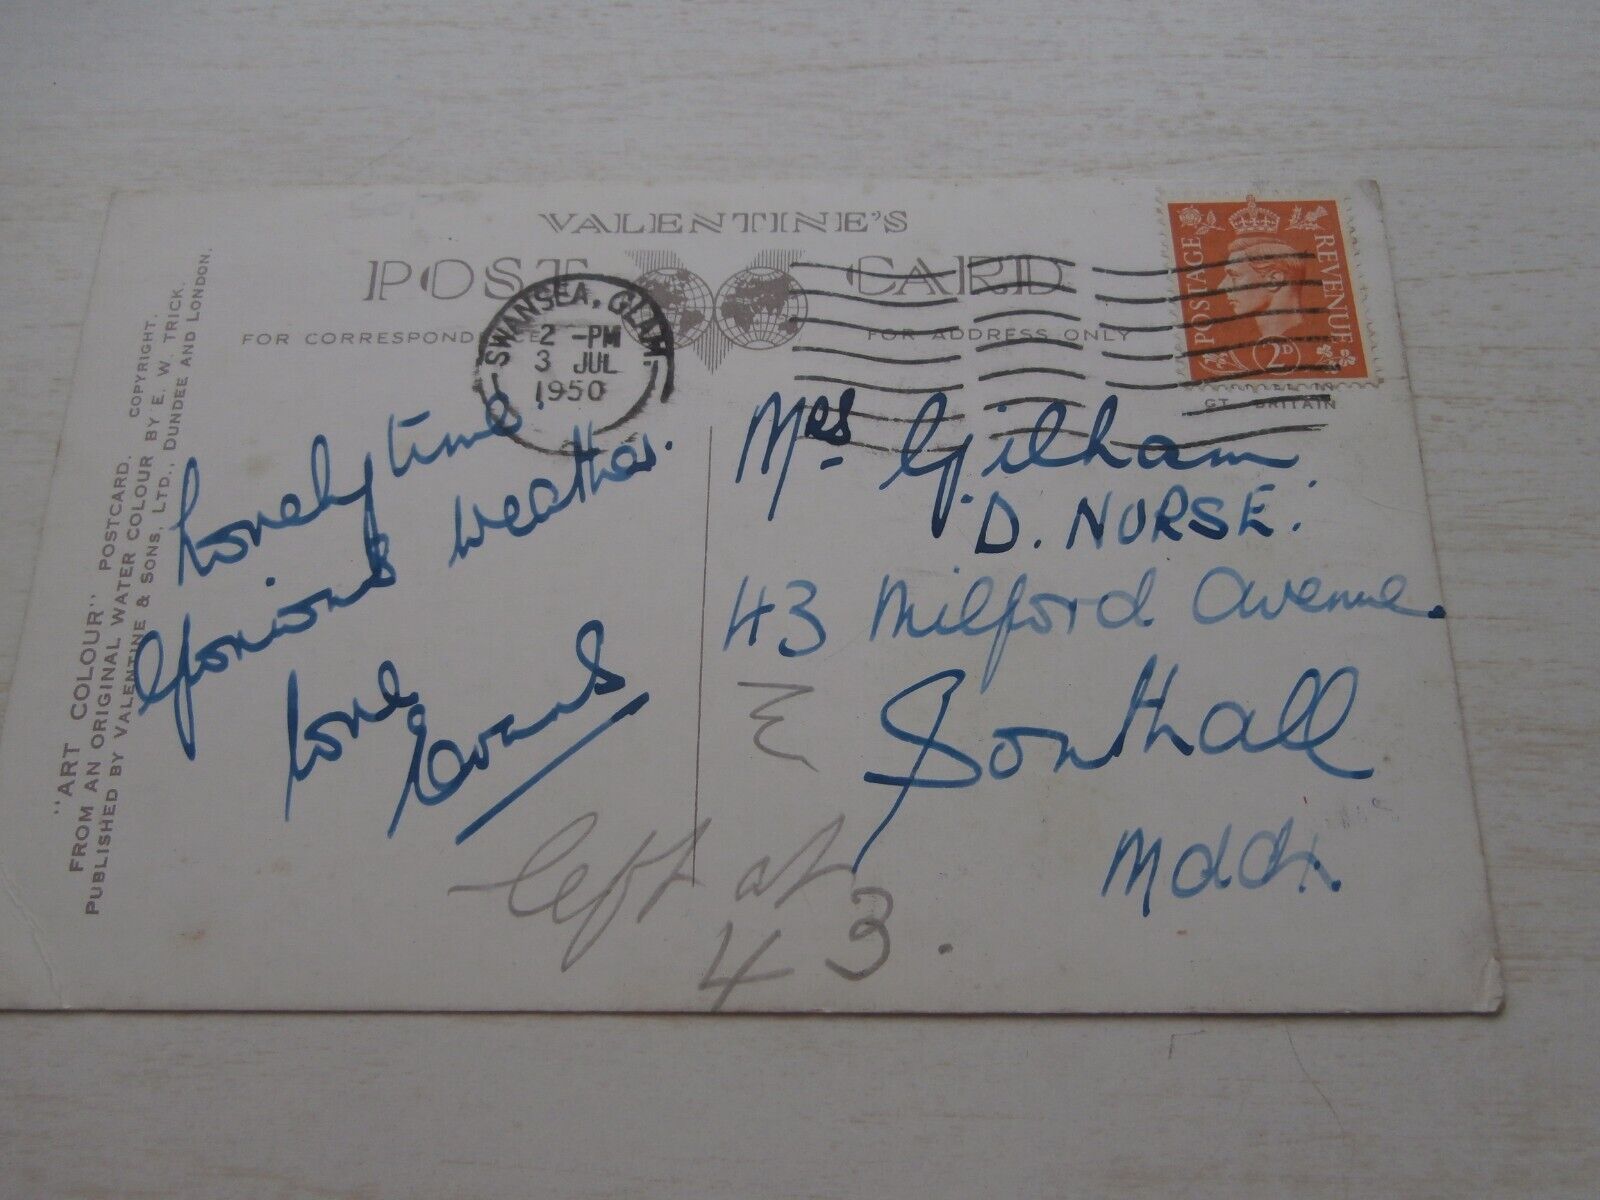 VALENTINE'S
POST CARD
FOR CORRESPONDENCE
FOR ADDRESS ONLY
SWANSEA, GLAM.
2 - PM
3 JUL
1950
POSTAGE
REVENUE
2D
GT. BRITAIN
"ART COLOUR" POSTCARD. COPYRIGHT.
FROM AN ORIGINAL WATER COLOUR BY E. W. TRICK.
PUBLISHED BY VALENTINE & SONS, LTD., DUNDEE AND LONDON.
Lovely time.
Glorious weather.
love
Evans
Mrs Gilham
D. NURSE.
43 Milford Avenue.
Southall
Mddx.
left at
43.